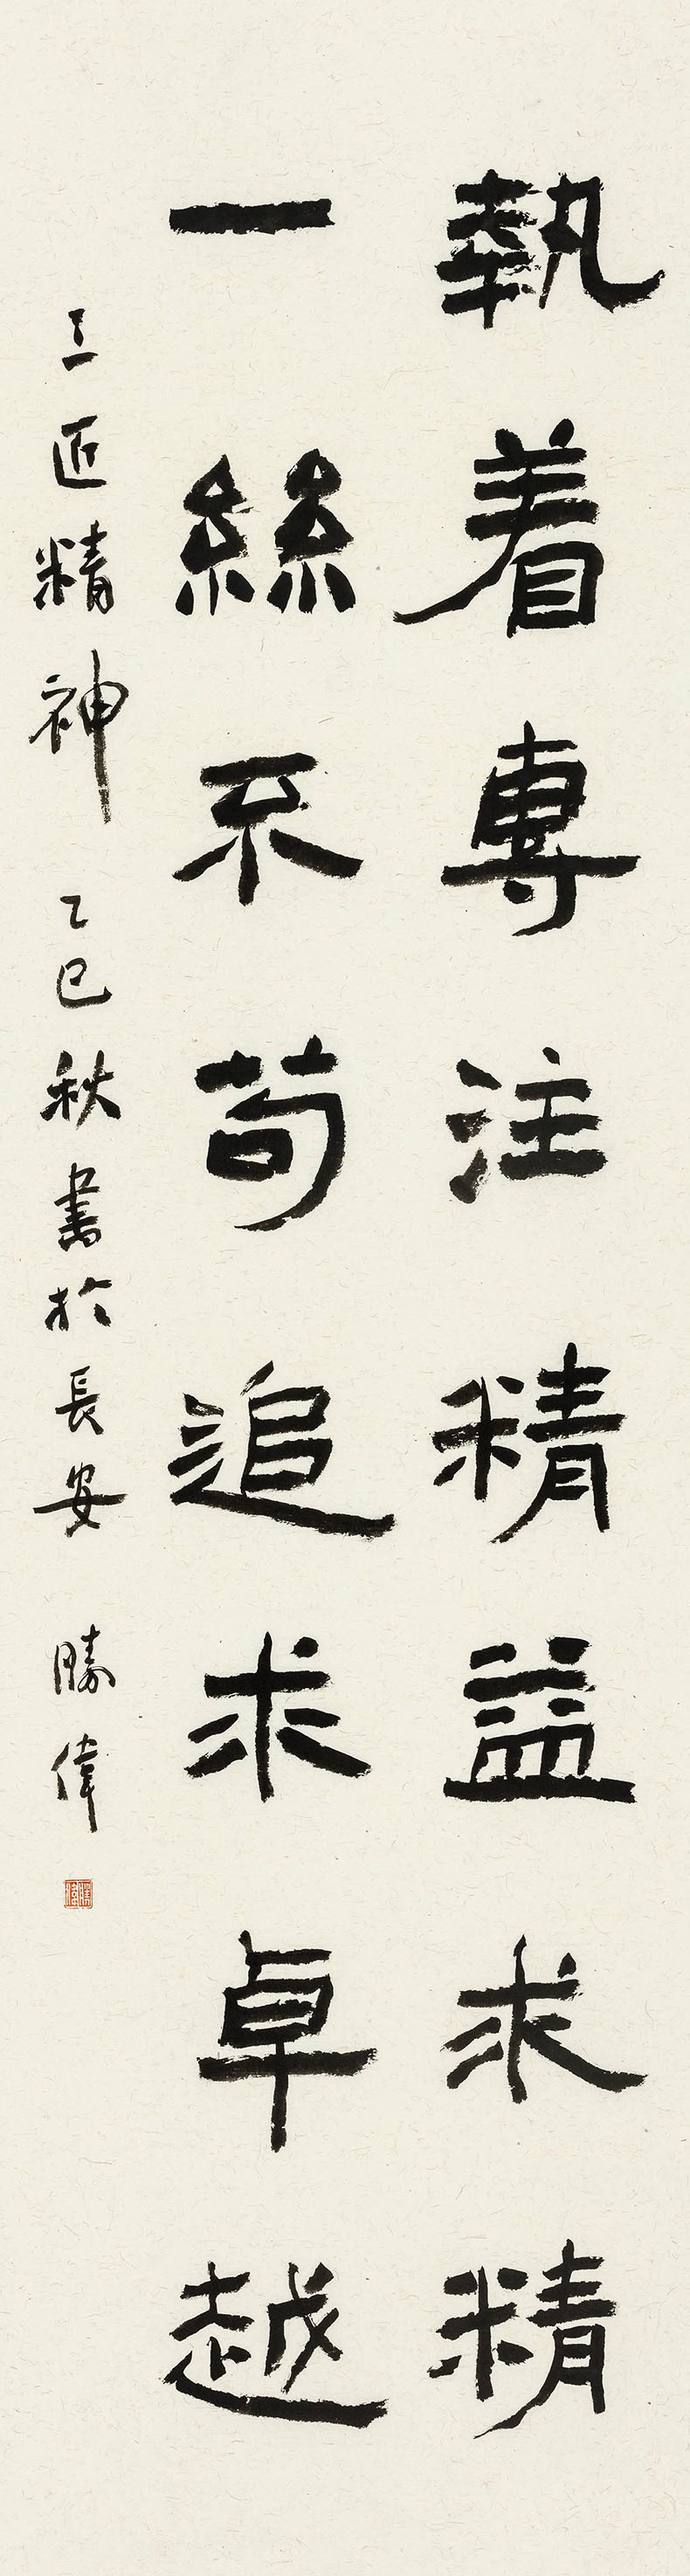 執着專注精益求精
一絲不苟追求卓越
工匠精神 乙巳秋書於長安 勝偉